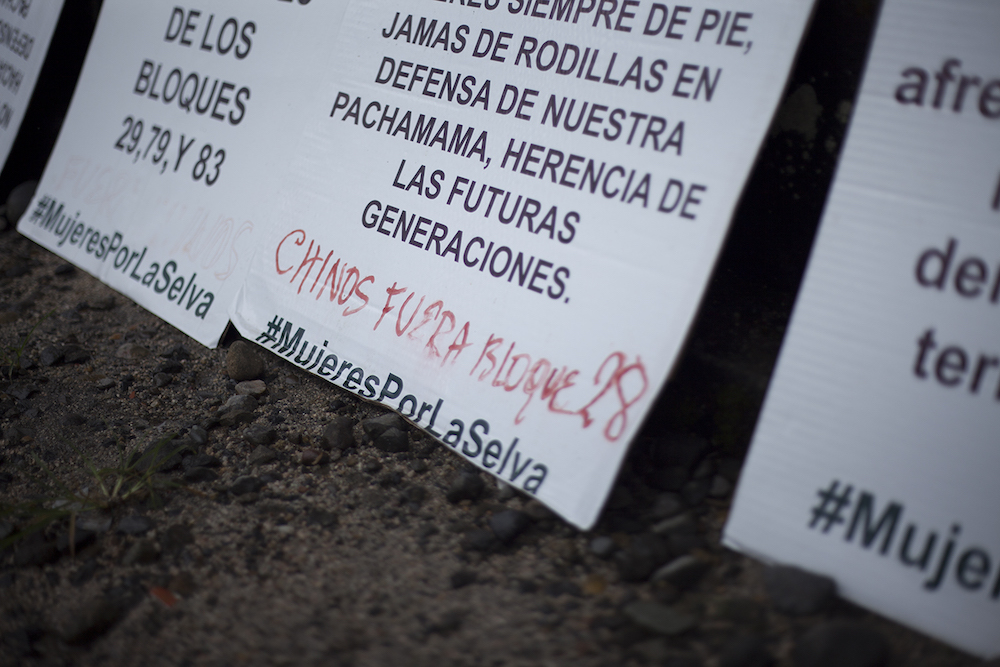 DE LOS
BLOQUES
29,79,Y 83
#MujeresPorLaSelva
SIEMPRE DE PIE,
JAMAS DE RODILLAS EN
DEFENSA DE NUESTRA
PACHAMAMA, HERENCIA DE
LAS FUTURAS
GENERACIONES.
CHINOS FUERA BLOQUE 28
#MujeresPorLaSelva
afre
de
terr
#Muje